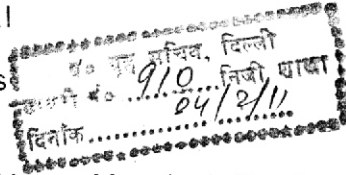 मुख्य सचिव, दिल्ली
डायरी सं० 910 निजी शाखा
दिनांक 04/2/11